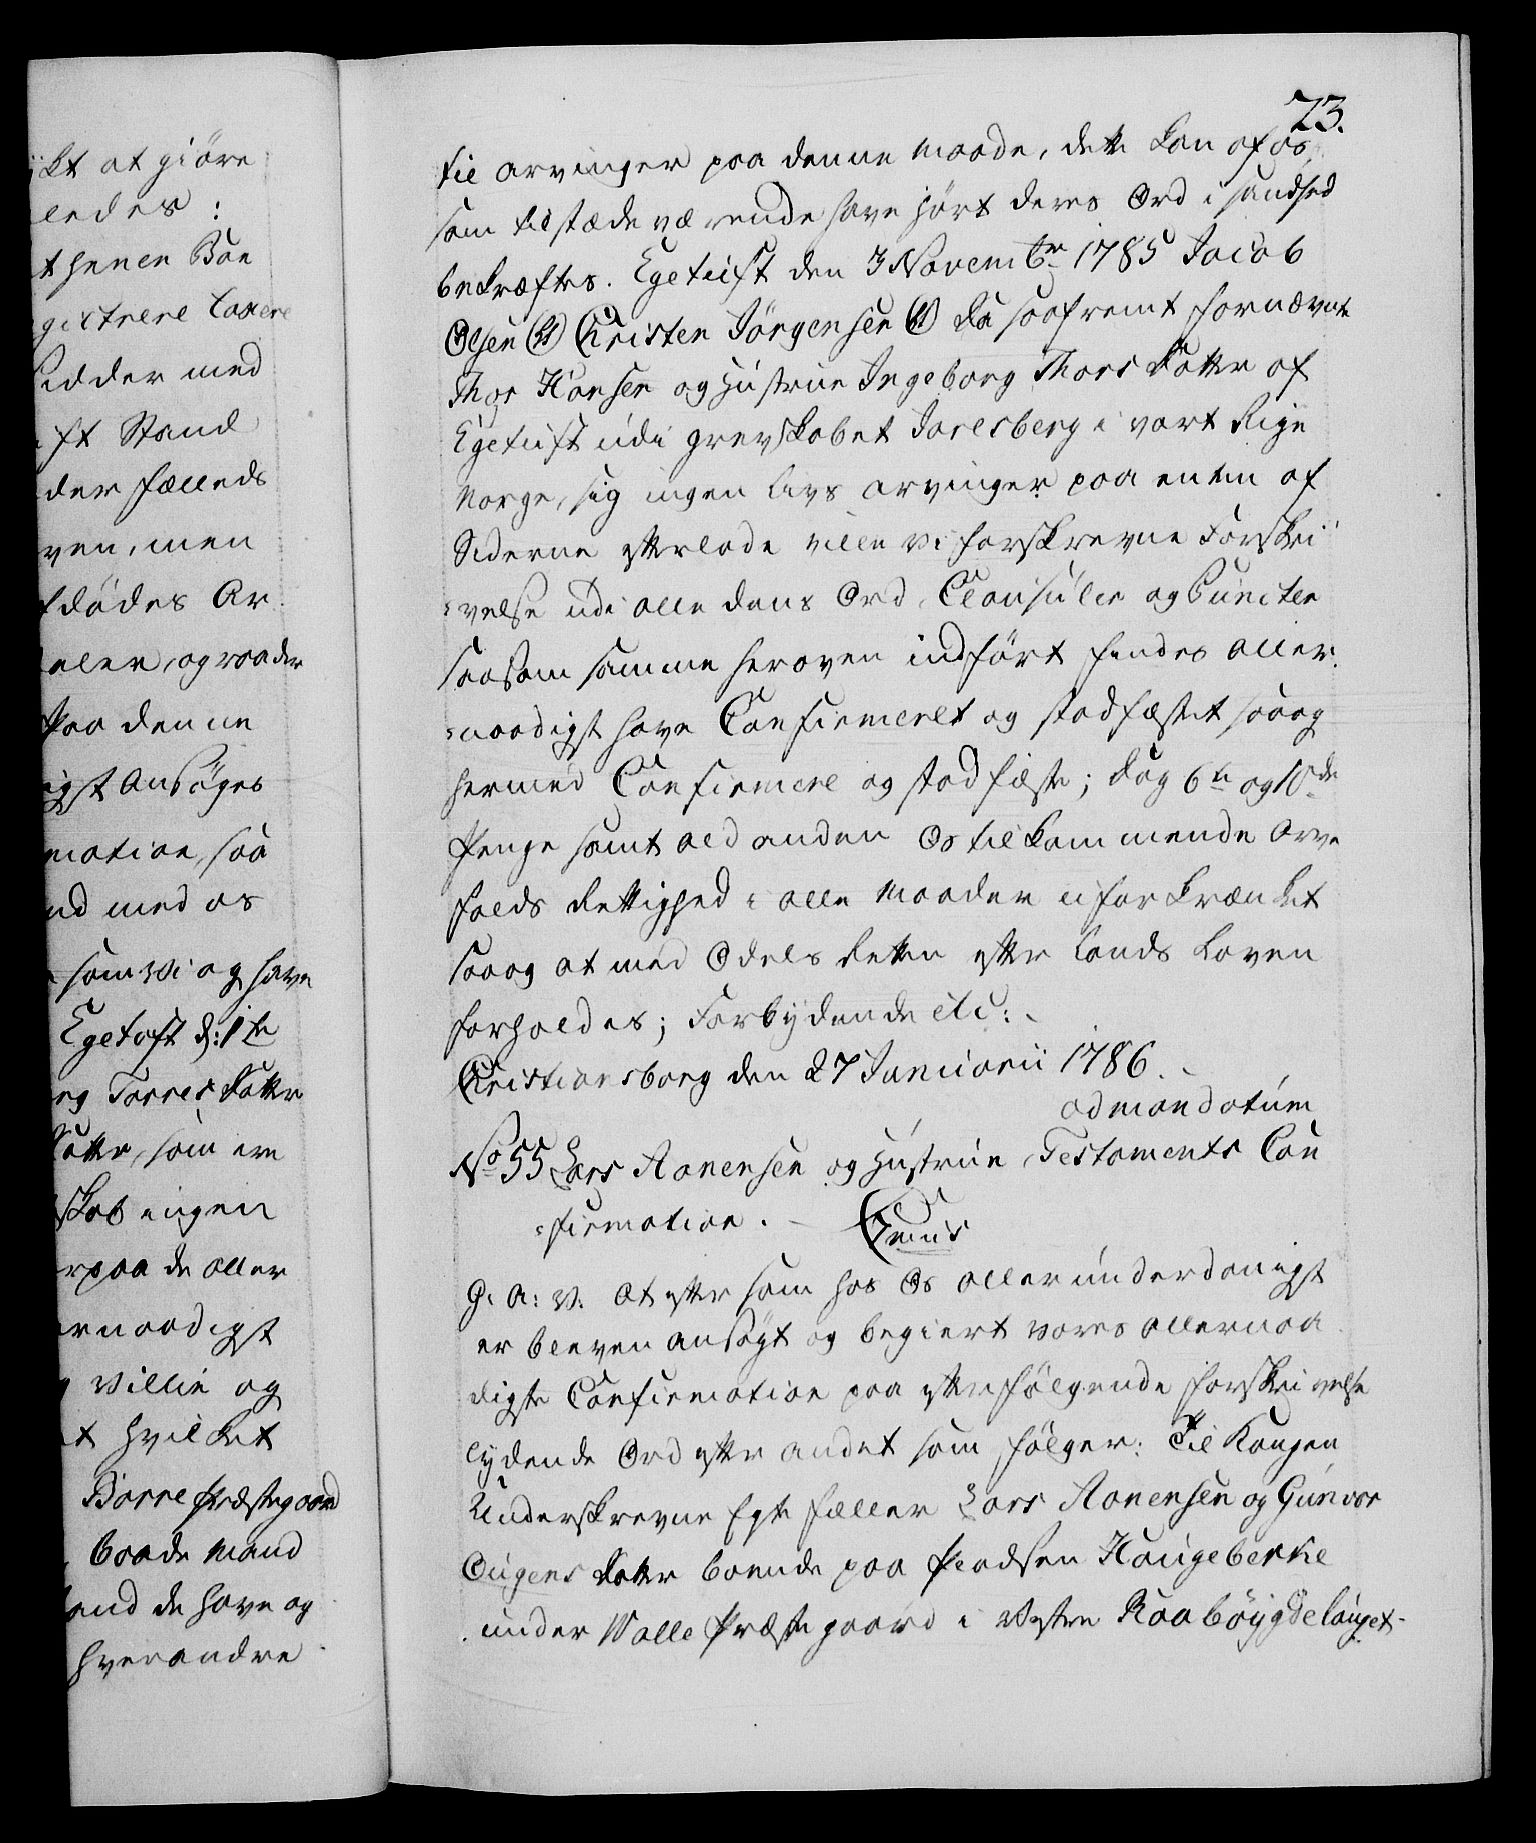 ykt at giöre
ledes:
t hennen Boe
gistrere taxere
sidder med
ift Stand
der fælleds
ven, men
fdödes Ar
eler, og raader
paa denne
igst Ansöges
mation, saa
nd med os
som vi og have
Egetuft d: 1te
rg Torres Datter
Datter, som ere
skab ingen
rpaa de aller
ernaadigt
Villie og
t hvilket
Borre Præstegaard
baade Mand
and de have og
hverandre
73.
til arvinger paa denne Maade, dette kan af os
som tilstædeværende have hört deres Ord i sandhed
bekræftes. Egetuft den 3 Novembr 1785 Jacob
Olsen (LS) Christen Jörgensen (LS) Da saafremt fornævnte
Thor Hansen og Hustrue Ingeborg Thorsdatter af
Egetuft udi grevskabet Jarlsberg i vort Rige
Norge, sig ingen Livs arvinger paa enten af
Siderne efterlade ville vi forskrevne Forskri
-velse udi alle dens Ord, Clausuler og Puncter
saasom samme heroven indfört findes aller
-naadigst have Confirmeret og stadfæstet saa og
hermed Confirmere og stadfæste; dog 6te og 10de
Penge samt ald anden Os tilkommende Arve
falds Rettighed i alle Maader uforkrænket
saa og at med Odels Retten efter Lands Loven
forholdes; Forbydende etc:
Christiansborg den 27 Januarii 1786.
ad mandatum
No 55 Lars Aanensen og Hustrue Testaments Con
-firmation. Gemus
G: A: V: At efter som hos Os allerunderdanigst
er bleven ansögt og begiert vores allernaa
digste Confirmation paa efterfölgende forskrivelse
lydende Ord efter andet som fölger: Til Kongen
Underskrevne Egte fæller Lars Aanensen og Gunvor
Ougens Datter boende paa Pladsen Haugeberke
under Walle Præstegaard i Vestre Raaböygdelauget